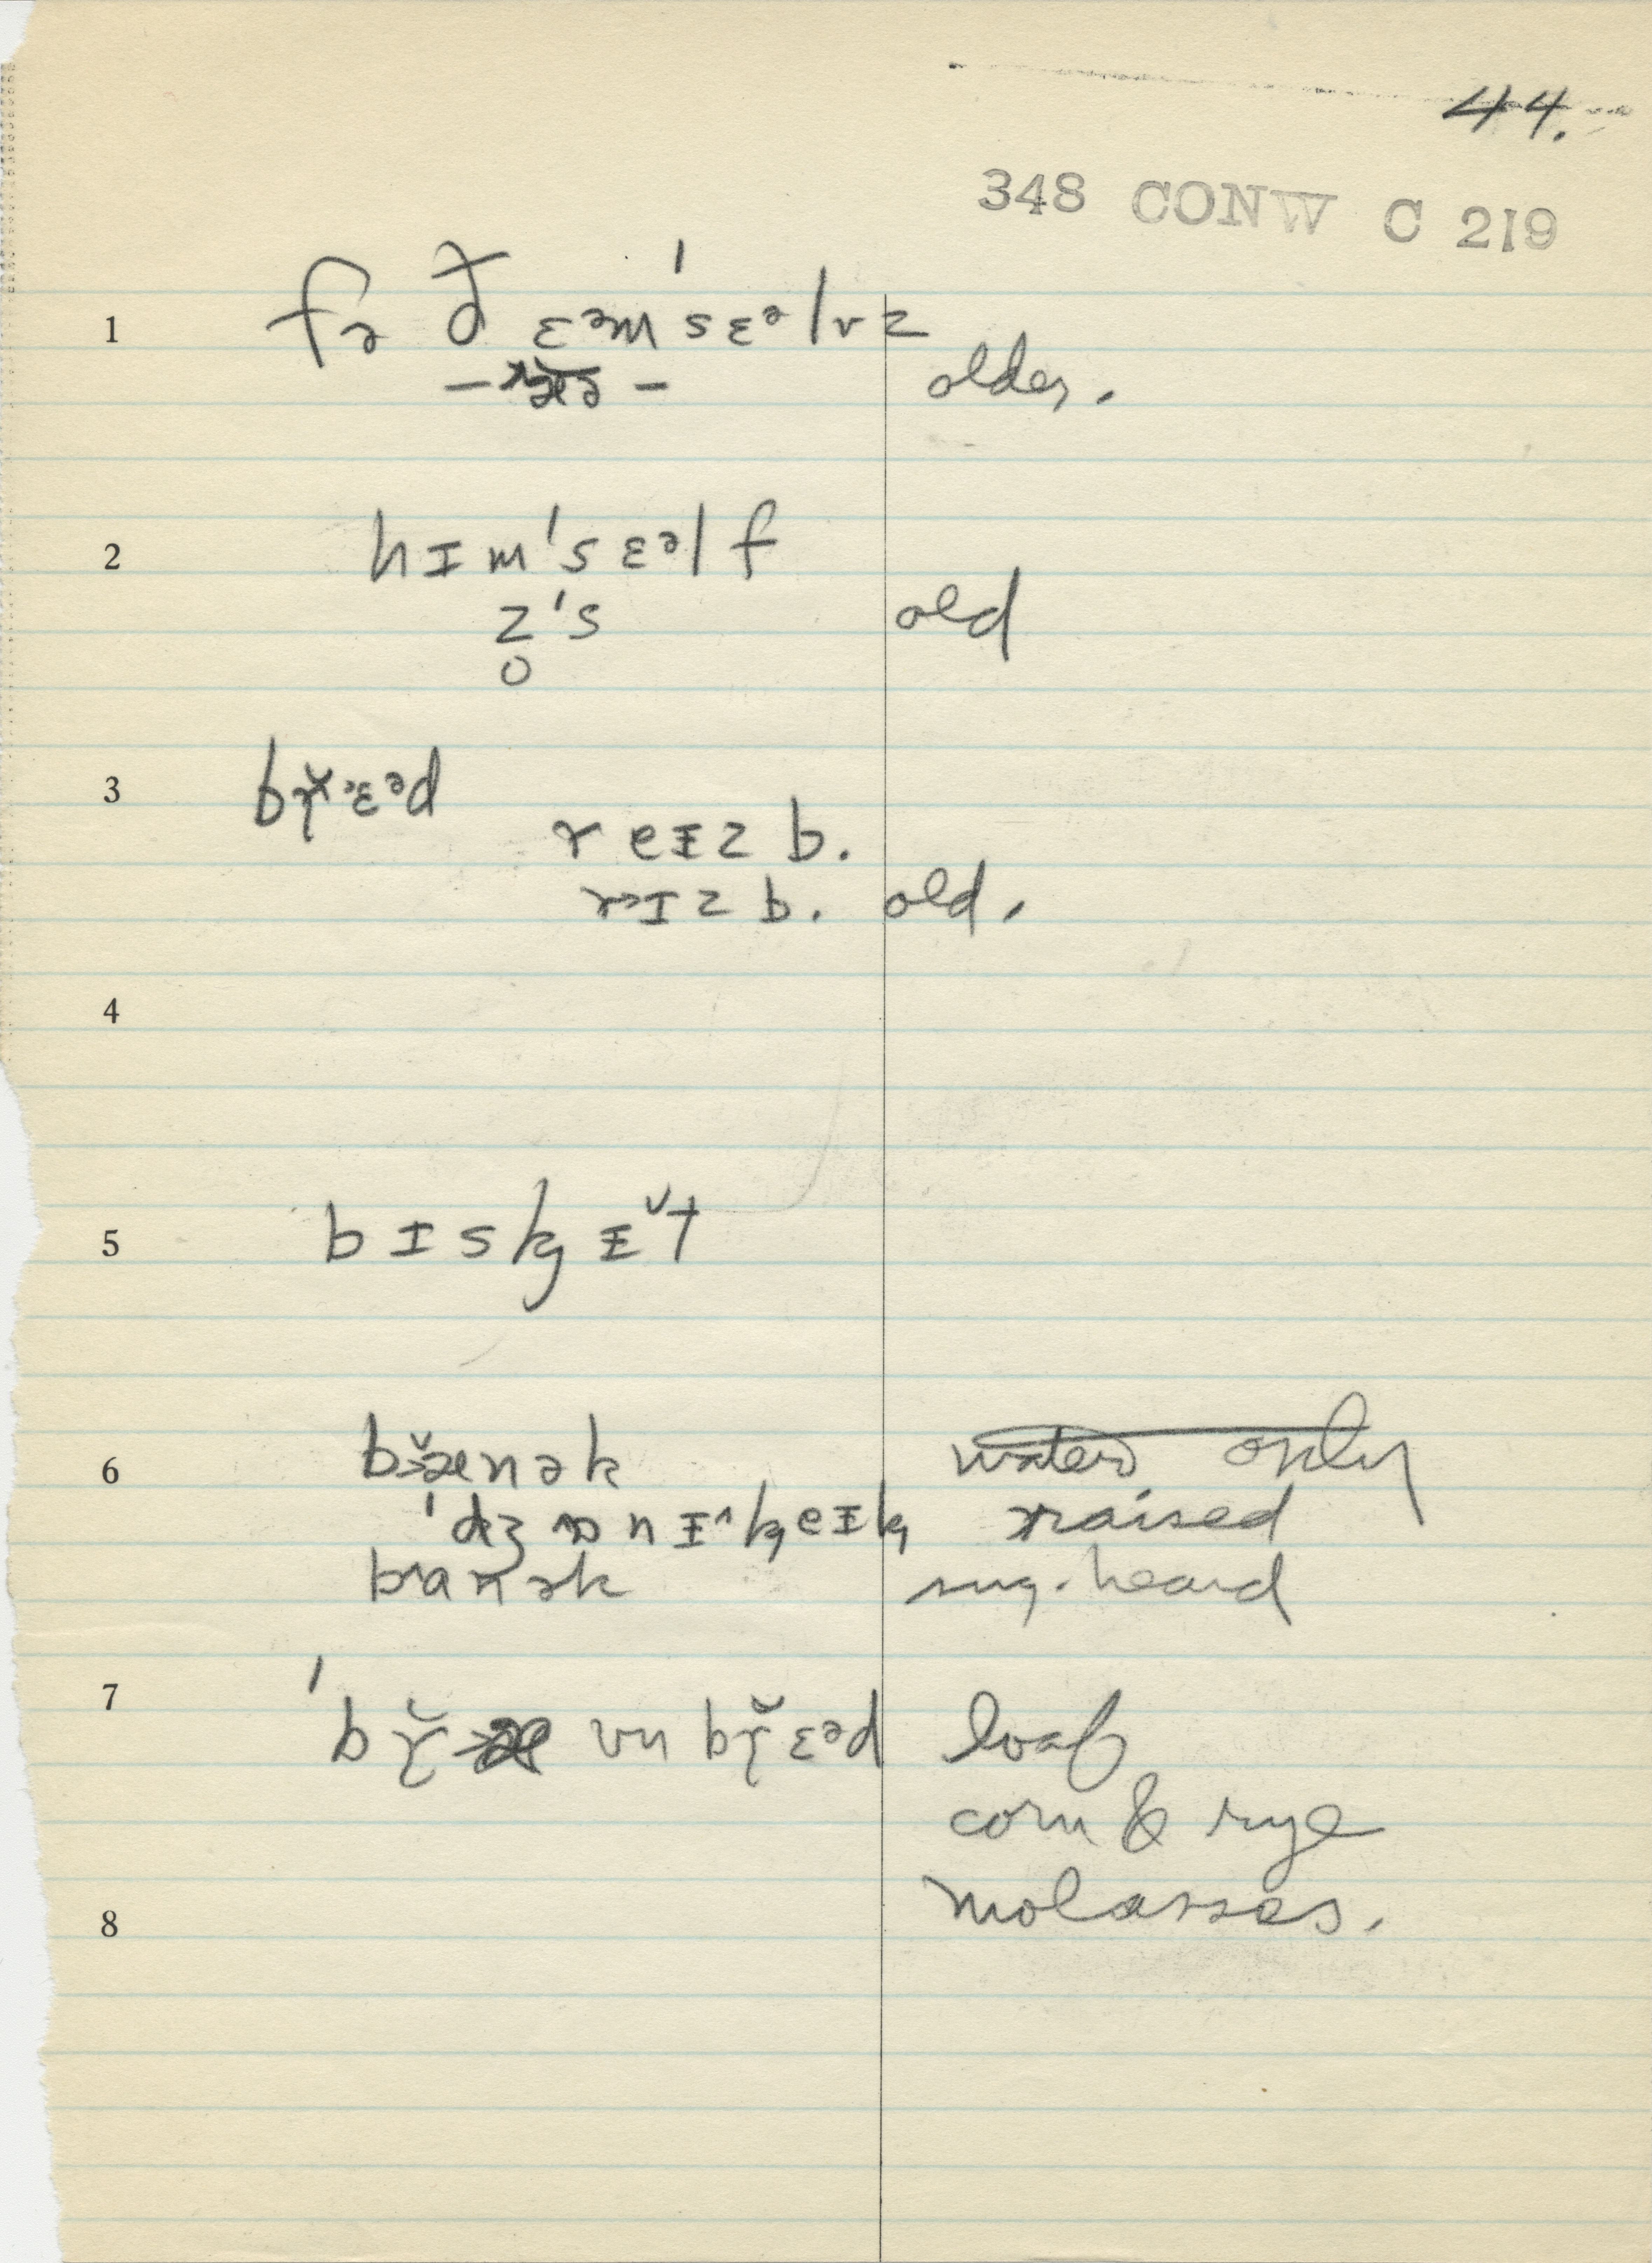 44.
348 CONW C 219
1 fə ð ɛᵊm'sɛᵊlvz
older.
2 hɪm'sɛᵊlf
z's old
3 bɹ̌ɛᵊd
r eɪz b.
rɪz b. old.
4
5 bɪskɪ̌t
6 bænək water only
'dʒɒnɪ^keɪk raised
banək sug. heard
7 'bɹ̌ vn bɹ̌ɛᵊd loaf
corn & rye
molasses.
8